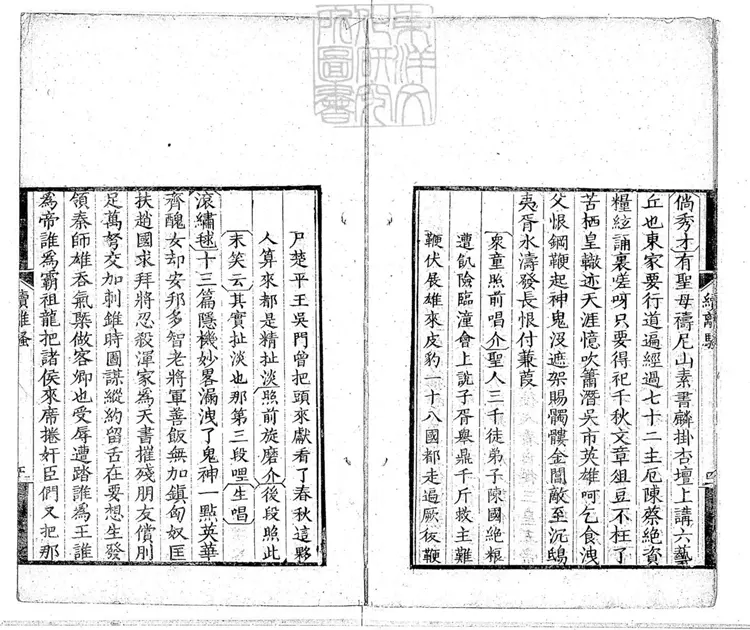 倘秀才有聖母禱尼山素書麟掛杏壇上講六藝
丘也東家要行道遍經過七十二主厄陳蔡絶資
糧絃誦裏嗟呀只要得祀千秋文章俎豆不枉了
苦栖皇轍迹天涯憶吹簫潛吳市英雄呵乞食洩
父恨鋼鞭起神鬼沒遮架賜髑髏金閶敵至沉鴟
夷胥水濤發長恨付蒹葭
衆童照前唱介聖人三千徒弟子陳國絶粮
遭飢險臨潼會上說子胥舉鼎千斤救主難
鞭伏展雄來皮豹一十八國都走遍厥後鞭
續離騷
四
尸楚平王吳門曾把頭來獻看了春秋這夥
人算來都是精扯淡照前旋磨介後段照此
末笑云其實扯淡也那第三段哩生唱
滾繡毬十三篇隱機妙畧漏洩了鬼神一點英華
齊醜女却安邦多智老將軍善飯無加鎮匈奴匡
扶趙國求拜將忍殺渾家為天書摧殘朋友償刖
足萬弩交加刺錐時國謀縱約留舌在要想生發
領秦師雄吞氣槩做客卿也受辱遭踏誰為王誰
為帝誰為霸祖龍把諸侯來席捲奸臣們又把那
續離騷
五
東洋文化研究所圖書